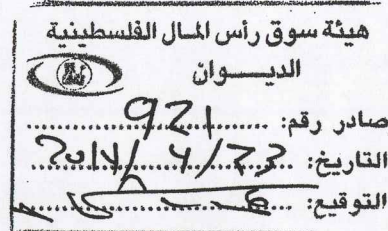 هيئة سوق رأس المال الفلسطينية
الديوان
صادر رقم: 921
التاريخ:
التوقيع: